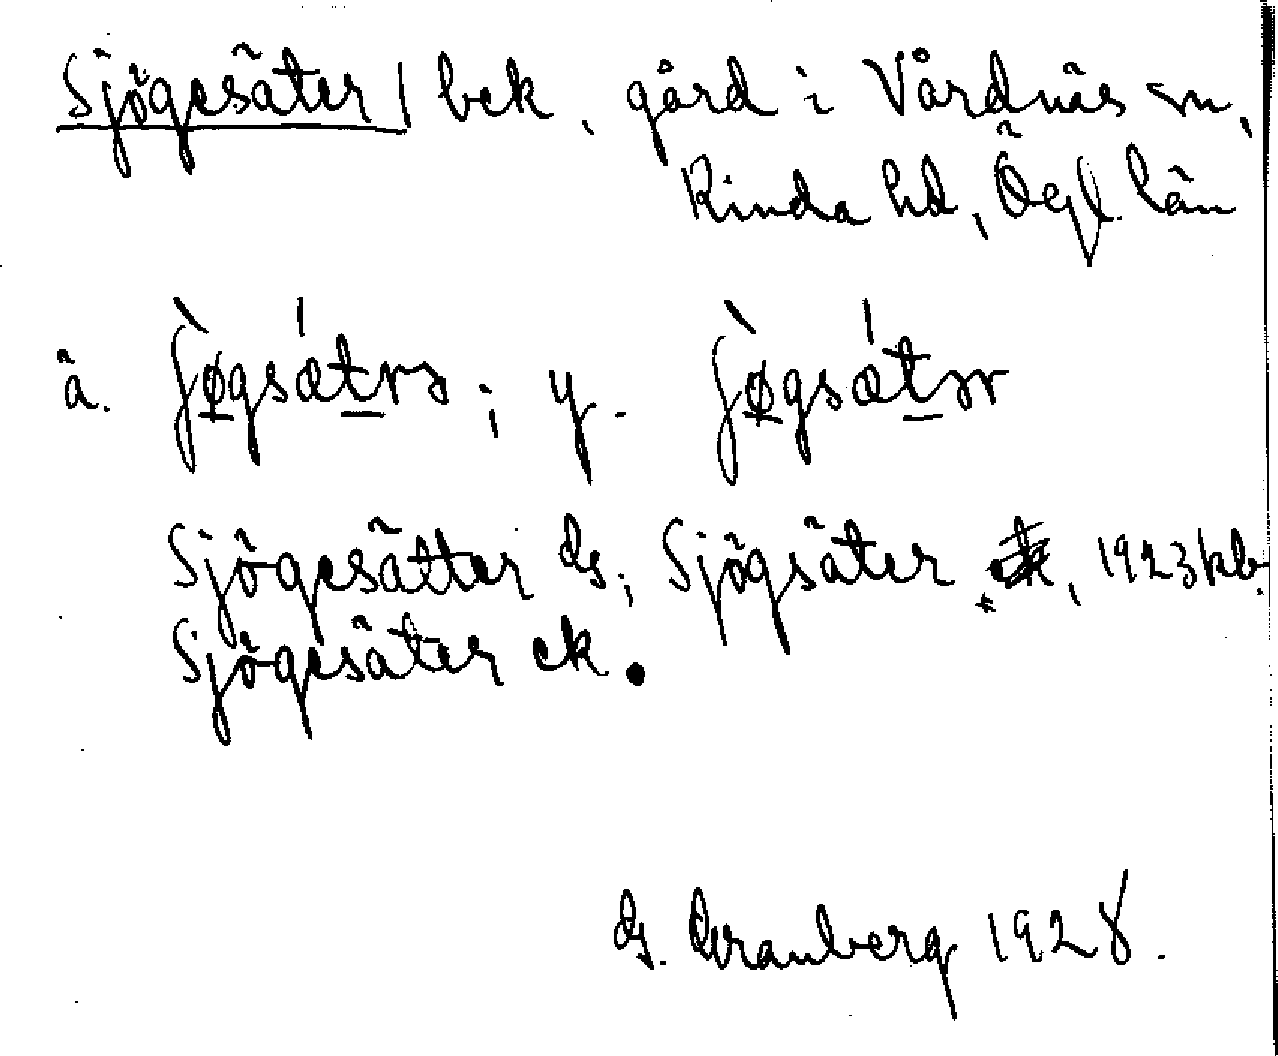 Sjögesäter | bek, gård i Vårdnäs sn,
Kinda hd, Ögl. län
ä. ʃø̀gsǽtrə ; y. ʃø̀gsǽtər
Sjögesätter ds; Sjögsäter, 1923 kb.
Sjögesäter ek.
G. Granberg 1928.